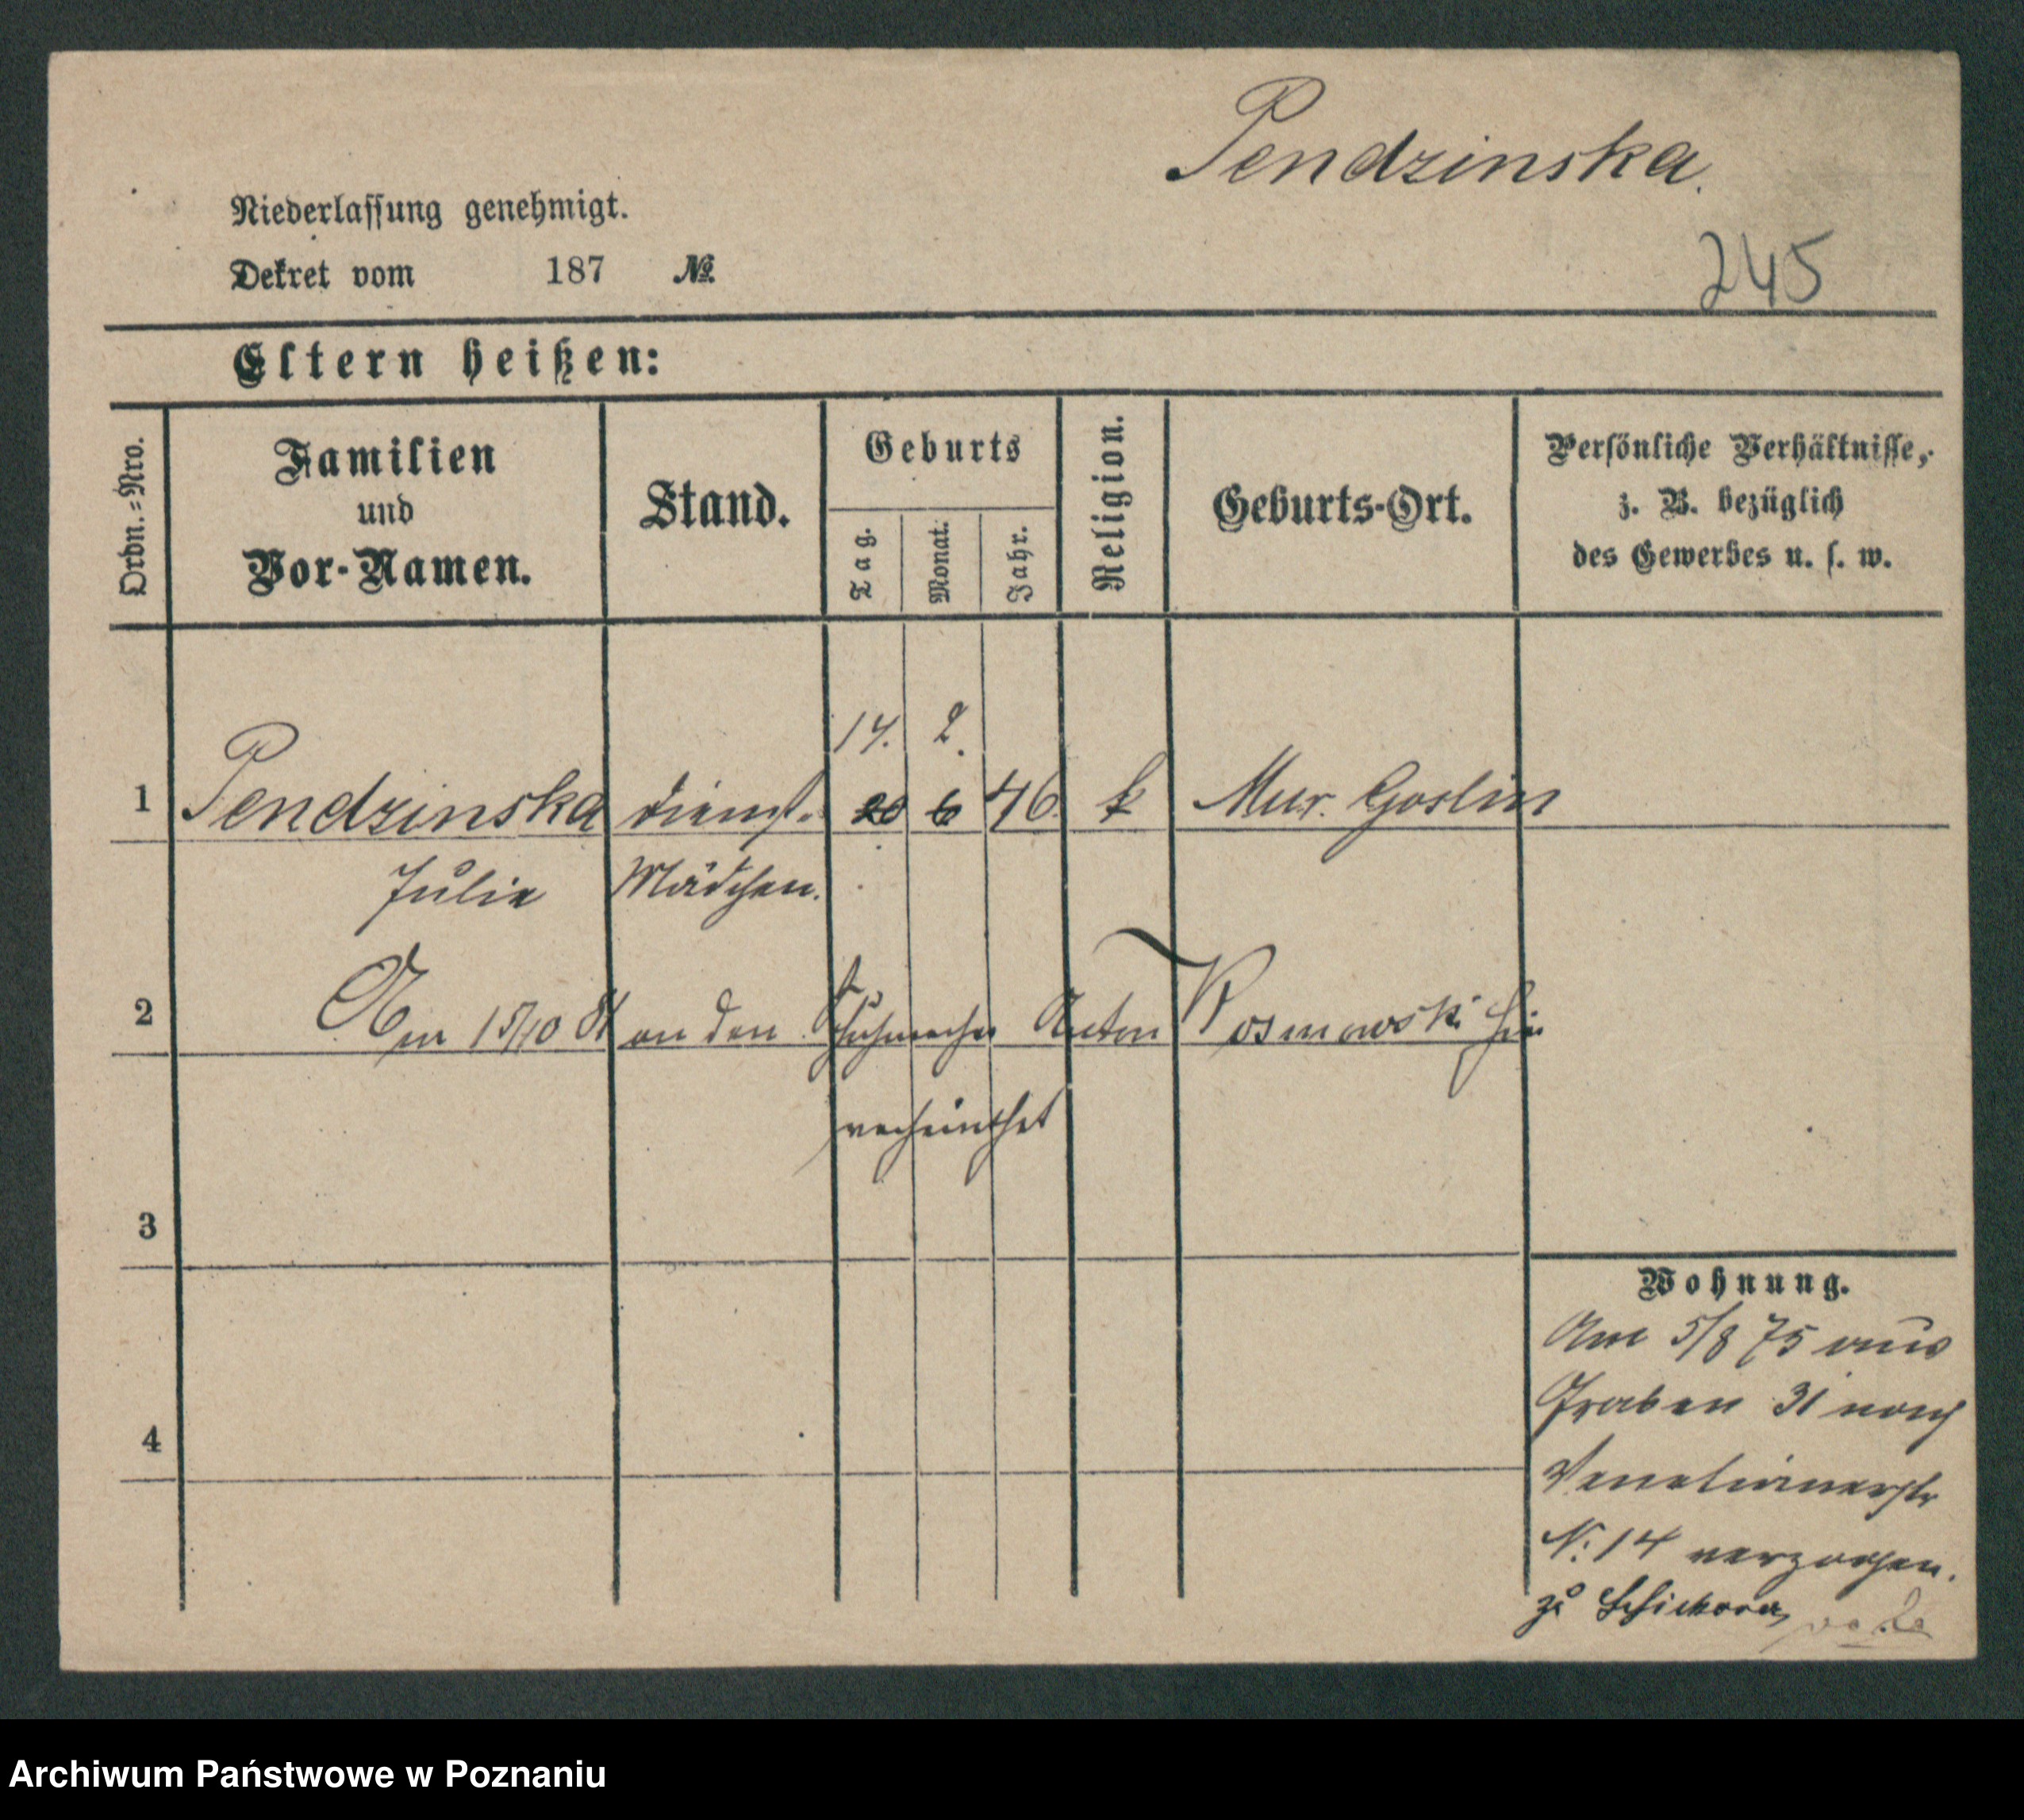 Pendzinska.
245
Niederlassung genehmigt.
Dekret vom 187 №
Eltern heißen:
Ordn.=Nro.
Familien
und
Vor-Namen.
Stand.
Geburts
Tag.
Monat.
Jahr.
Religion.
Geburts-Ort.
Persönliche Verhältnisse,
z. B. bezüglich
des Gewerbes u. s. w.
14. 2.
1 Pendzinska dienst. 20 6 46 k Mur. Goslin
Julie Mädchen.
2 Am 15/10 81 an den Schuhmacher Anton Rosmowski hier
verheirathet
3
4
Wohnung.
Am 5/8 75 aus
Graben 31 nach
Venetianerstr
N: 14 verzogen.
zu
Archiwum Państwowe w Poznaniu